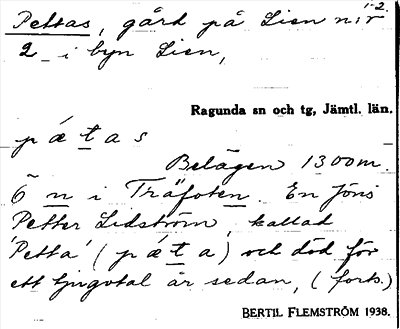 Pettas, gård på Lien n:r 1-2
2 i byn Lien,
Ragunda sn och tg, Jämtl. län.
p ǽ t a s
Belägen 1300 m.
Ö n i Träfoten. En Jöns
Petter Lidström, kallad
'Petta' (p ǽ t a) och död för
ett tjugotal år sedan, (forts.)
BERTIL FLEMSTRÖM 1938.